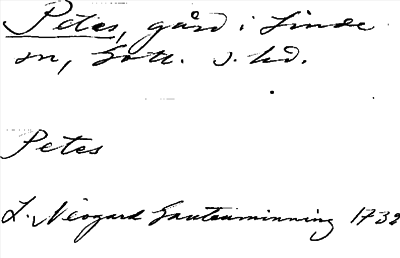 Petes, gård i Linde
sn, Gotl. s. hd.
Petes
L. Neogard Gautauminning 1732